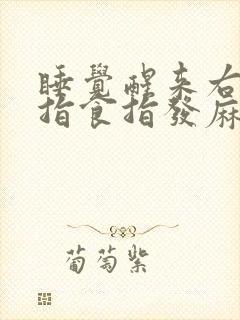 睡覺醒来右
指食指發麻
葡萄紫